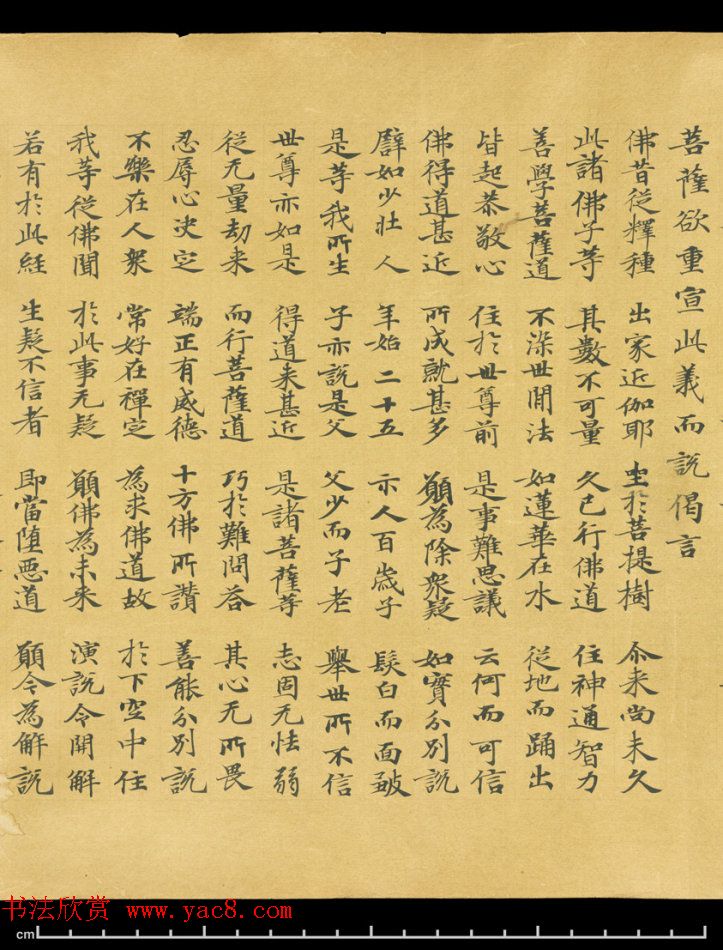 菩薩欲重宣此義而說偈言
佛昔從釋種 出家近伽耶 坐於菩提樹 尒来尚未久
此諸佛子等 其數不可量 久已行佛道 住神通智力
善學菩薩道 不染世間法 如蓮華在水 從地而踊出
皆起恭敬心 住於世尊前 是事難思議 云何而可信
佛得道甚近 所成就甚多 願為除衆疑 如實分別說
譬如少壮人 年始二十五 示人百歲子 髮白而面皺
是等我所生 子亦說是父 父少而子老 舉世所不信
世尊亦如是 得道来甚近 是諸菩薩等 志固无怯弱
從无量劫来 而行菩薩道 巧於難問答 其心无所畏
忍辱心決定 端正有威德 十方佛所讚 善能分別說
不樂在人衆 常好在禪定 為求佛道故 於下空中住
我等從佛聞 於此事无疑 願佛為未来 演說令開解
若有於此經 生疑不信者 即當堕惡道 願令為解說
书法欣赏 www.yac8.com
cm